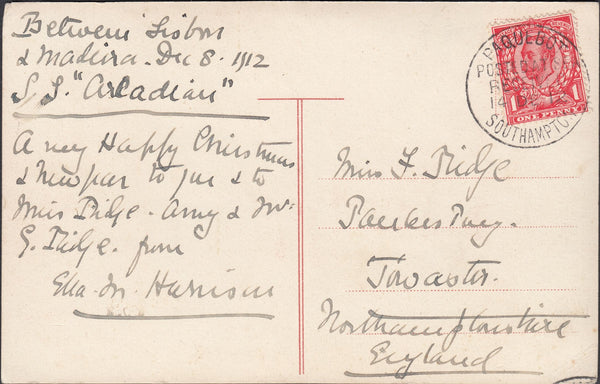 Between Lisbon
& Madeira. Dec 8. 1912
S. S. "Arcadian"
A very Happy Christmas
& New year to you & to
Miss Fidge. Amy & Mr
G. Fidge. from
Ella M. Harrison
PAQUEBOT
POSTED
14 DE 12
SOUTHAMPTO
1 1
ONE PENNY
Miss F. Fidge
Paulerspury.
Towcester.
Northamptonshire
England